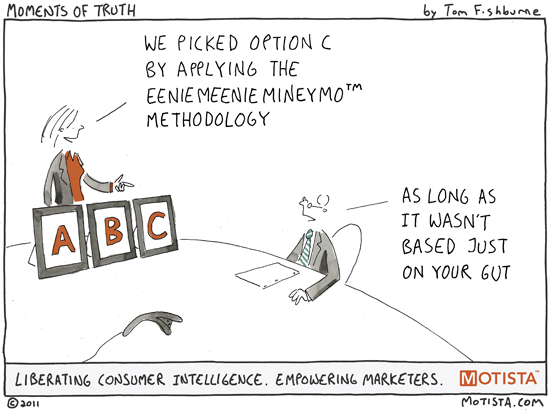 MOMENTS OF TRUTH
by Tom Fishburne
WE PICKED OPTION C
BY APPLYING THE
EENIEMEENIEMINEYMO™
METHODOLOGY
AS LONG AS
IT WASN'T
BASED JUST
ON YOUR GUT
A B C
LIBERATING CONSUMER INTELLIGENCE. EMPOWERING MARKETERS.
M MOTISTA™
©2011
MOTISTA.COM